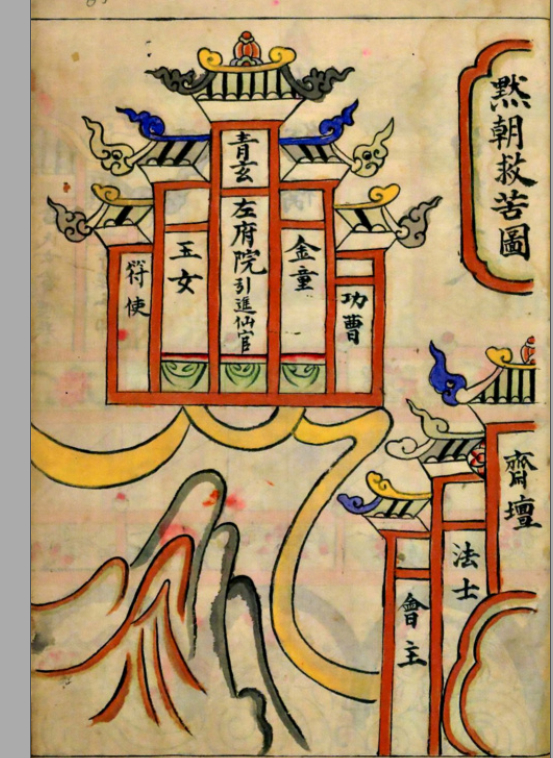 黙朝救苦圖
青玄
左府院引進仙官
金童
玉女
功曹
符使
齋壇
法士
會主